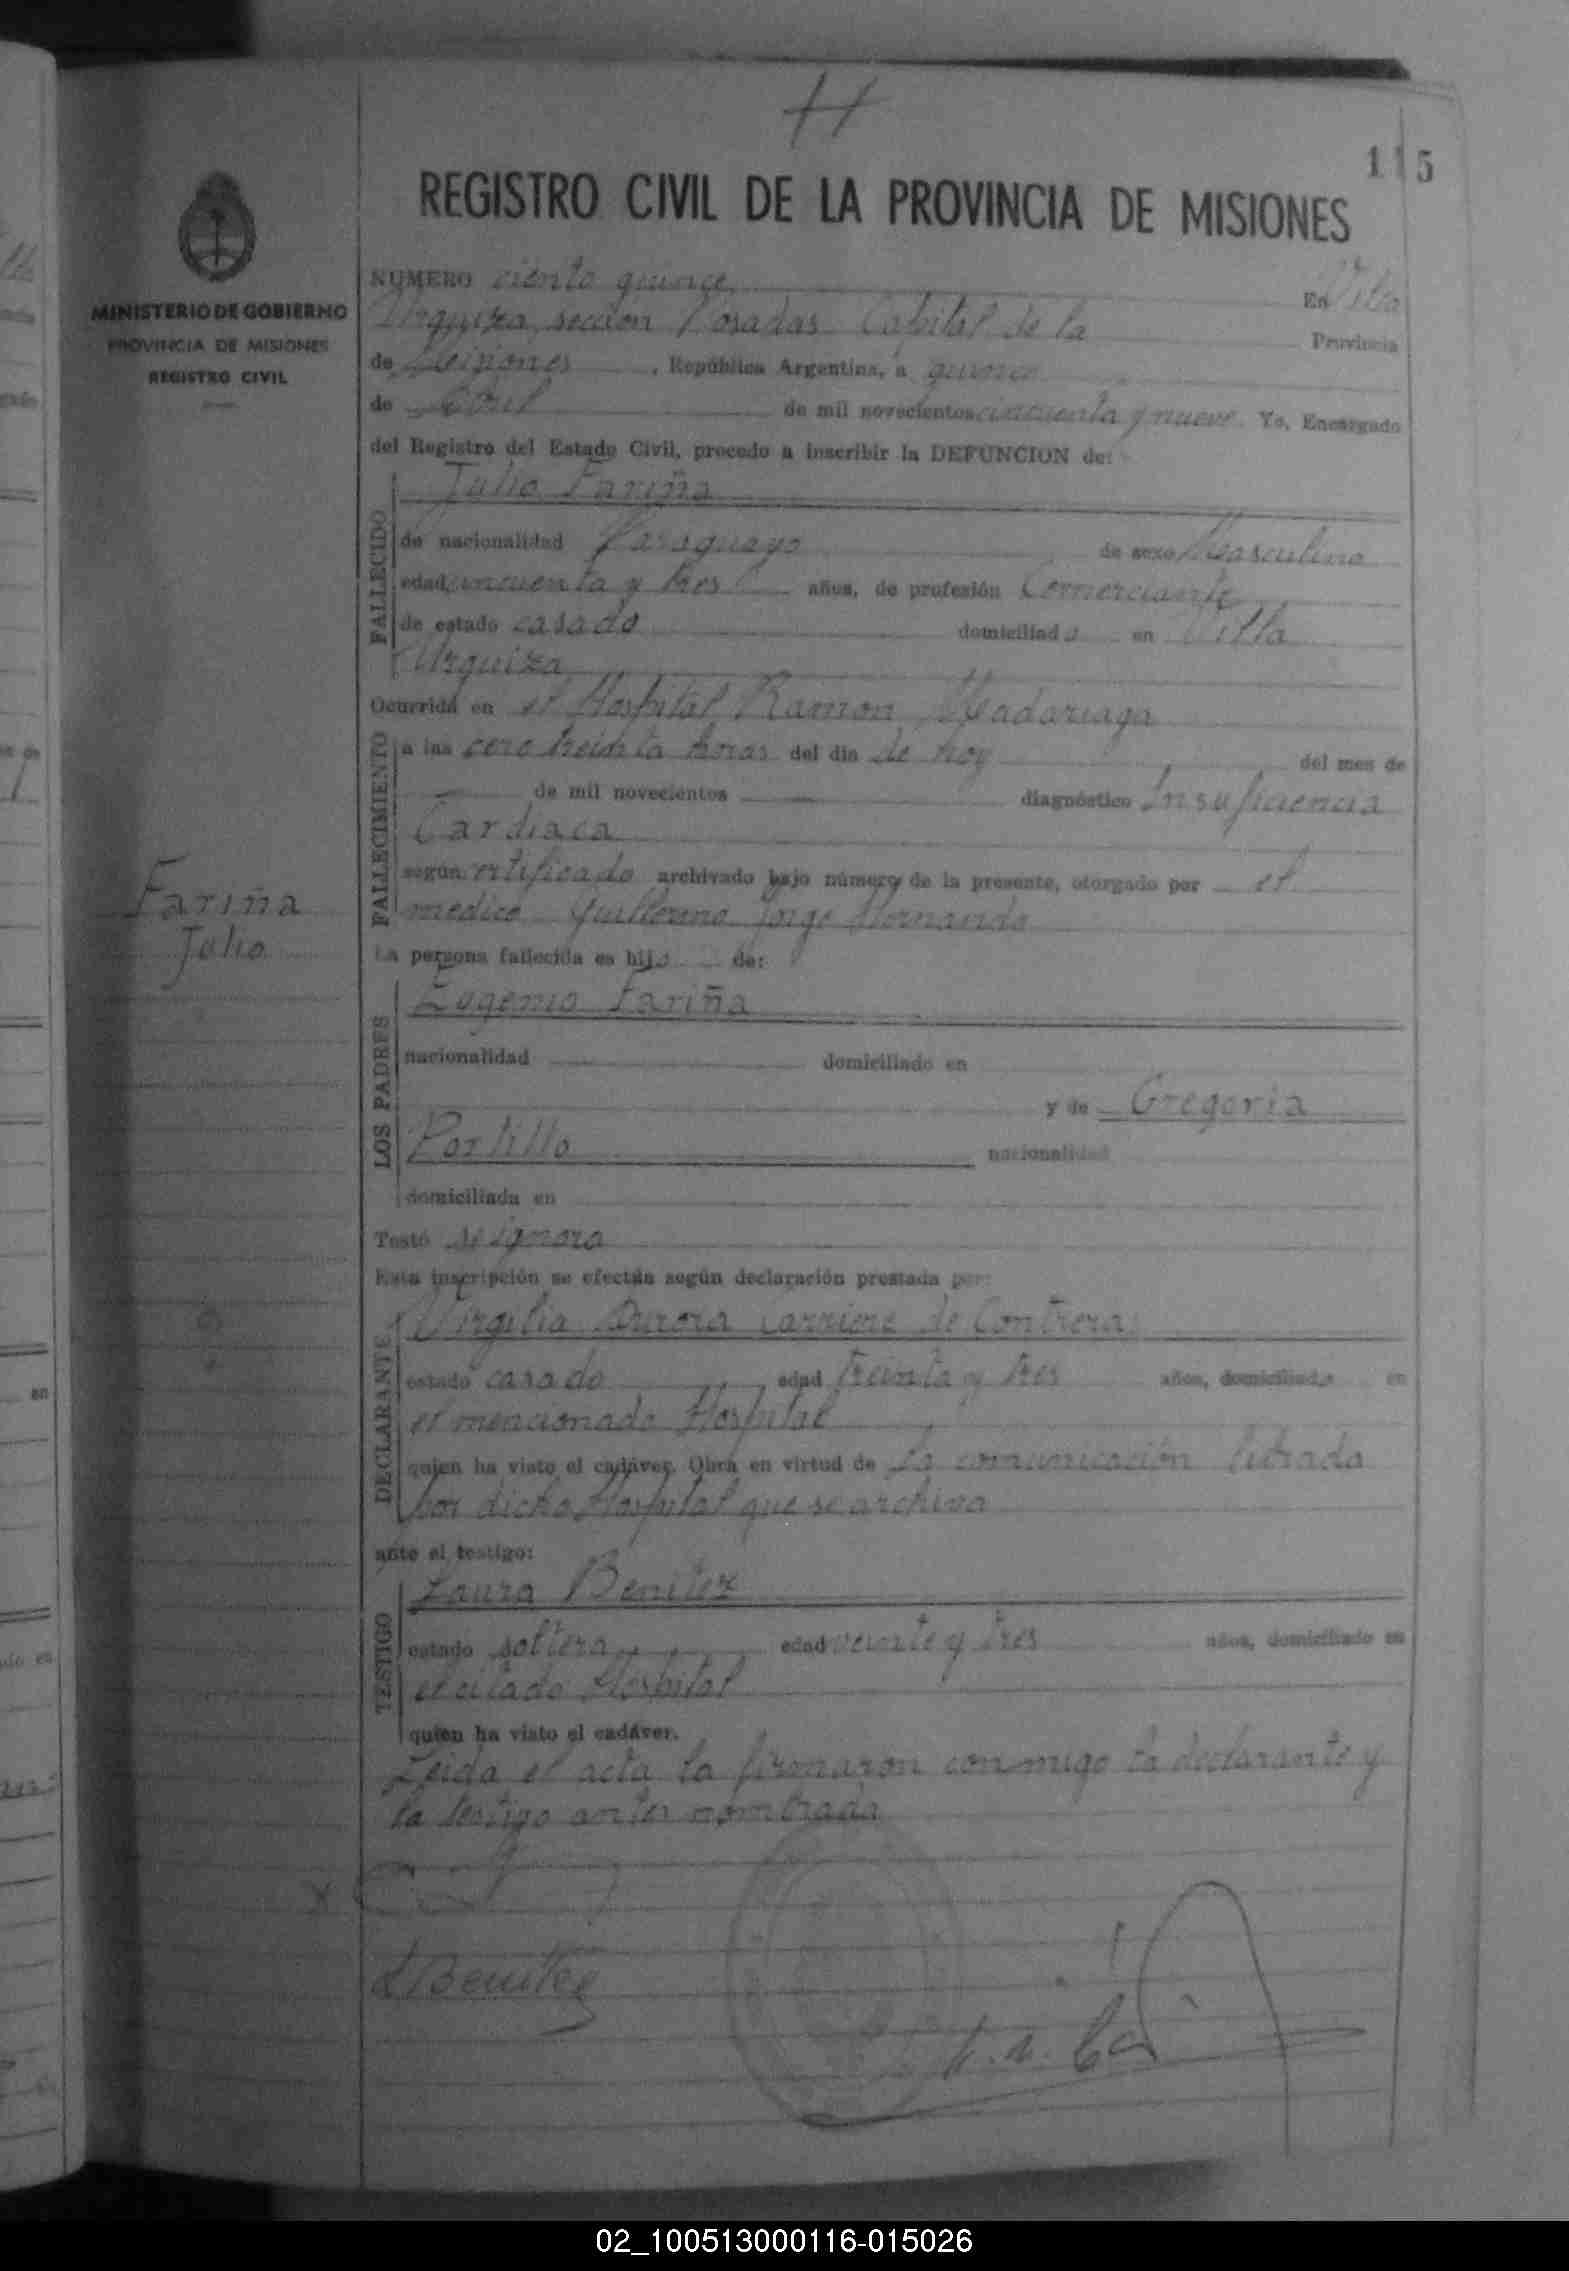 H
115
REGISTRO CIVIL DE LA PROVINCIA DE MISIONES
MINISTERIO DE GOBIERNO
PROVINCIA DE MISIONES
REGISTRO CIVIL
NUMERO ciento quince En Villa
Urquiza, sección Posadas Capital de la Provincia
de Misiones, República Argentina, a quince
de Abril de mil novecientos cincuenta y nueve. Yo, Encargado
del Registro del Estado Civil, procedo a inscribir la DEFUNCION de:
FALLECIDO
Julio Fariña
de nacionalidad Paraguayo de sexo Masculino
edad cincuenta y tres años, de profesión Comerciante
de estado casado domiciliado en Villa
Urquiza
Ocurrida en el Hospital Ramon Madariaga
FALLECIMIENTO
a las cero treinta horas del dia de hoy del mes de
de mil novecientos diagnóstico Insuficiencia
Cardiaca
según certificado archivado bajo número de la presente, otorgado por el
medico Guillermo Jorge Hernando
Fariña
Julio
La persona fallecida es hijo de:
LOS PADRES
Eugenio Fariña
nacionalidad domiciliado en
y de Gregoria
Portillo nacionalidad
domiciliada en
Testó se ignora
Esta inscripción se efectúa según declaración prestada por:
DECLARANTE
Virgilia Aurora Carriere de Contrera
estado casado edad treinta y tres años, domiciliado en
el mencionado Hospital
quien ha visto el cadáver. Obra en virtud de la comunicación librada
por dicho Hospital que se archiva
ante el testigo:
TESTIGO
Laura Benitez
estado soltera edad veinte y tres años, domiciliado en
el citado Hospital
quien ha visto el cadáver.
Leida el acta la firmaron conmigo la declarante y
la testigo antes nombrada
LBenitez
02_100513000116-015026